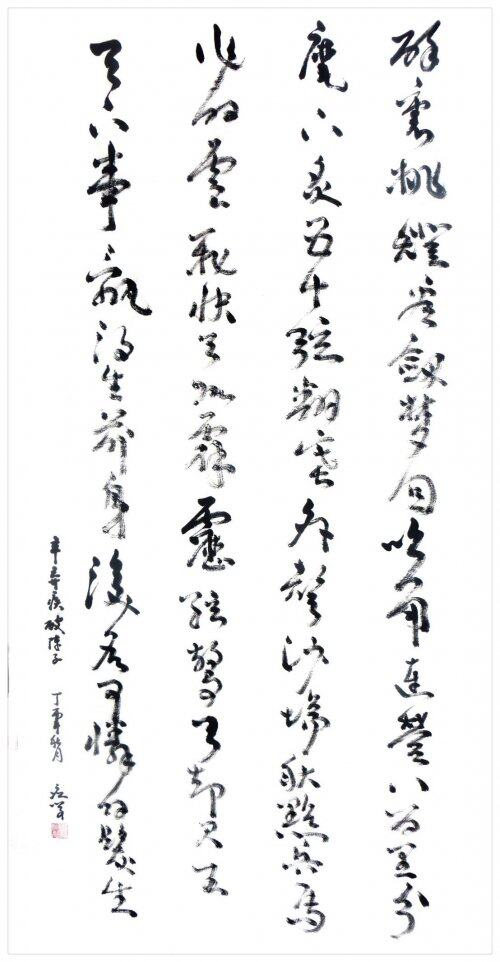 醉裏挑燈看劍夢回吹角連營八百里分
麾下炙五十弦翻塞外聲沙場秋點兵馬
作的盧飛快弓如霹靂弦驚了却君王
天下事贏得生前身後名可憐白髮生
辛棄疾破陣子 丁酉秋月